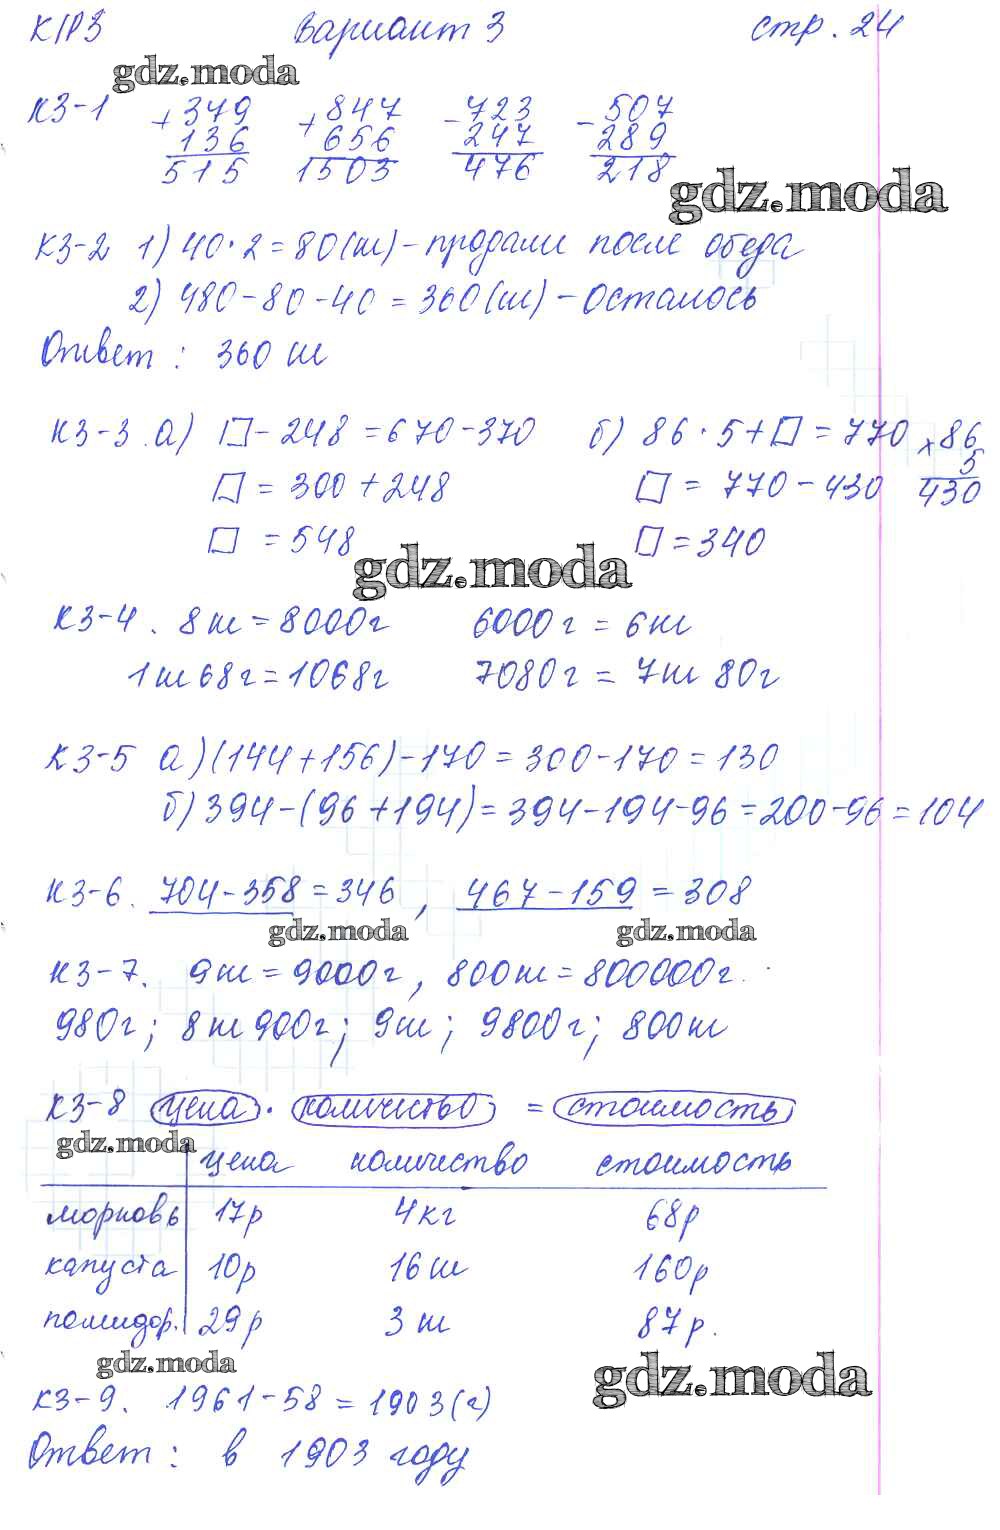 К/Р3 Вариант 3 стр. 24
gdz.moda
К3-1 +379 +847 -723 -507
136 656 247 289
515 1503 476 218
gdz.moda
К3-2 1) 40·2=80(кг)-продали после обеда
2) 480-80-40=360(кг)-Осталось
Ответ: 360 кг
К3-3.а) □-248=670-370 б) 86·5+□=770 ×86
5
□=300+248 □=770-430 430
□=548 □=340
gdz.moda
К3-4. 8кг=8000г 6000г=6кг
1кг68г=1068г 7080г=7кг 80г
К3-5 а)(144+156)-170=300-170=130
б)394-(96+194)=394-194-96=200-96=104
К3-6. 704-358=346, 467-159=308
gdz.moda gdz.moda
К3-7. 9кг=9000г, 800кг=800000г.
980г; 8кг900г; 9кг; 9800г; 800кг
К3-8 цена · количество = стоимость
gdz.moda
цена количество стоимость
морковь 17р 4кг 68р
капуста 10р 16кг 160р
помидор. 29р 3кг 87р.
gdz.moda gdz.moda
К3-9. 1961-58=1903(г)
Ответ: в 1903 году